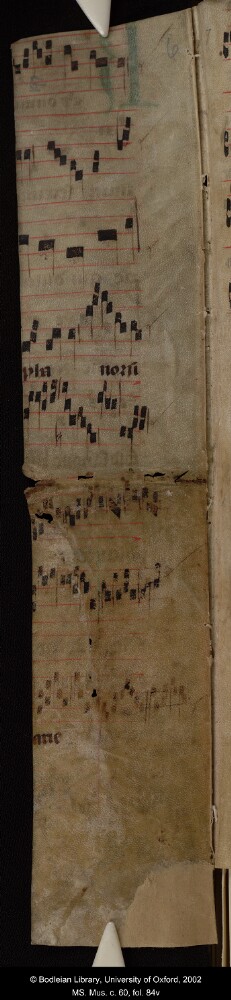 6
pla nosti
me
© Bodleian Library, University of Oxford, 2002
MS. Mus. c. 60, fol. 84v